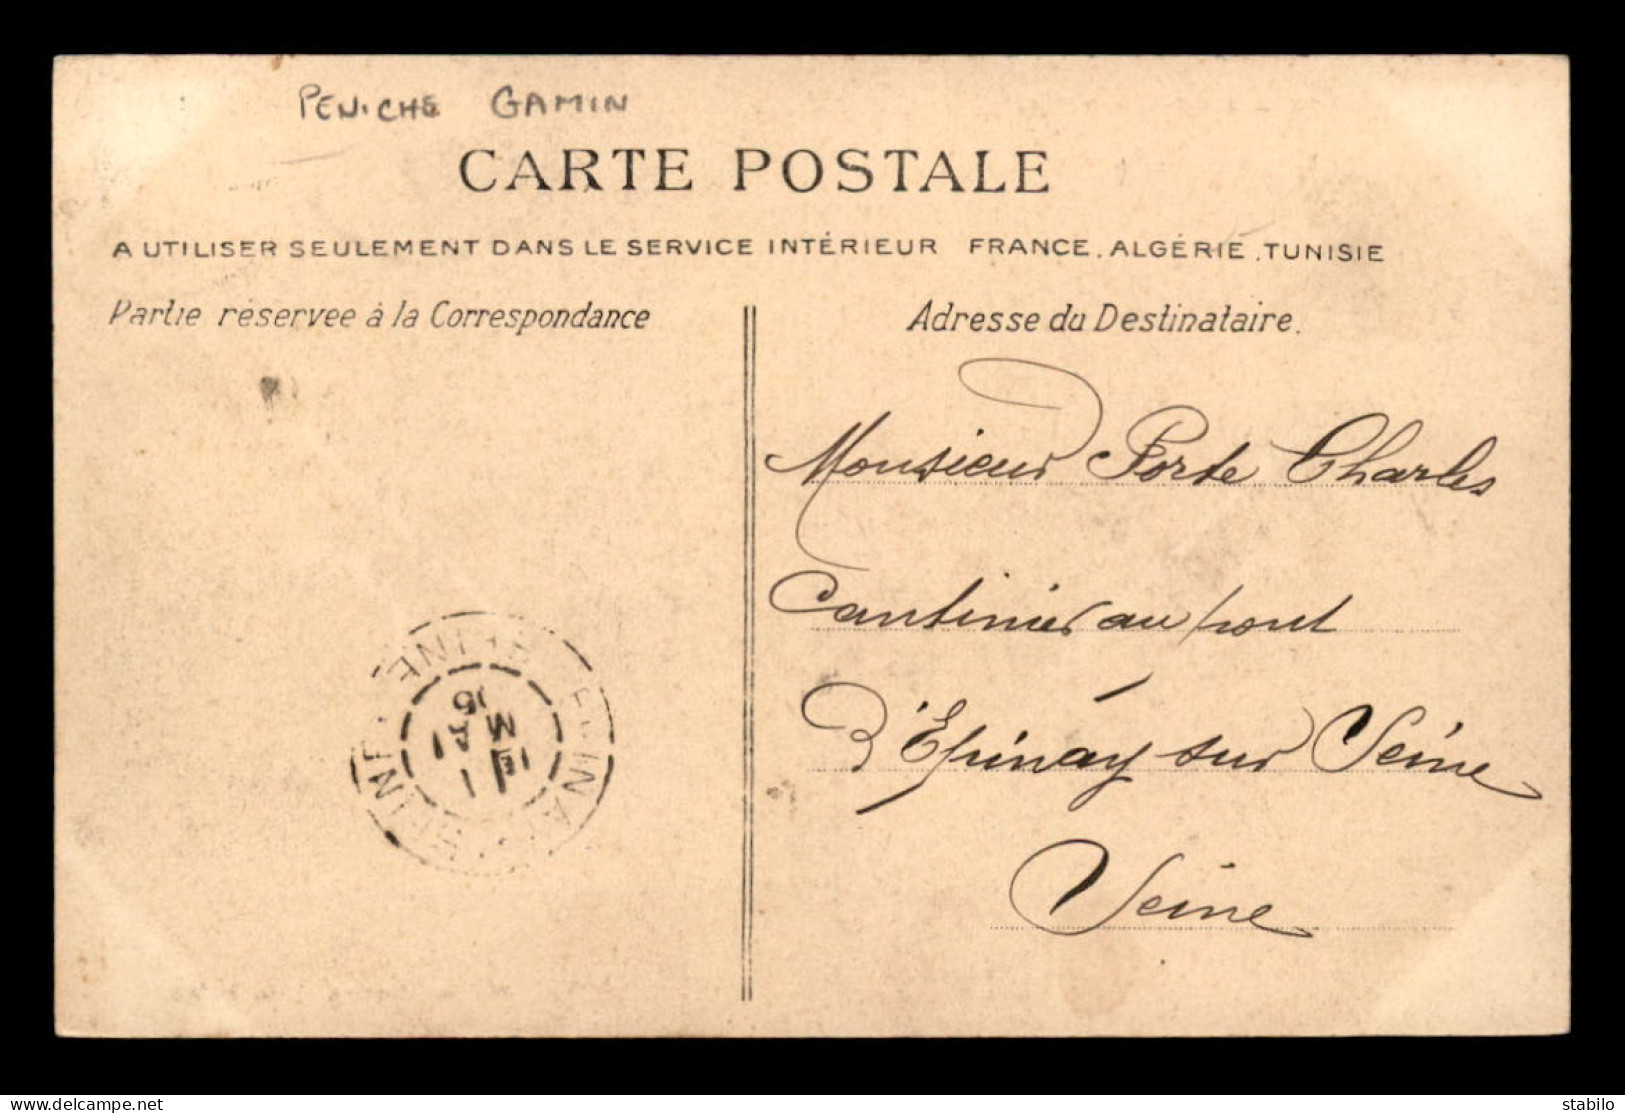 PENICHE GAMIN
CARTE POSTALE
A UTILISER SEULEMENT DANS LE SERVICE INTÉRIEUR FRANCE, ALGÉRIE, TUNISIE
Partie réservée à la Correspondance
Adresse du Destinataire.
Monsieur Porte Charles
Cantinier au pont
d'Epinay sur Seine
Seine
www.delcampe.net
stabilo